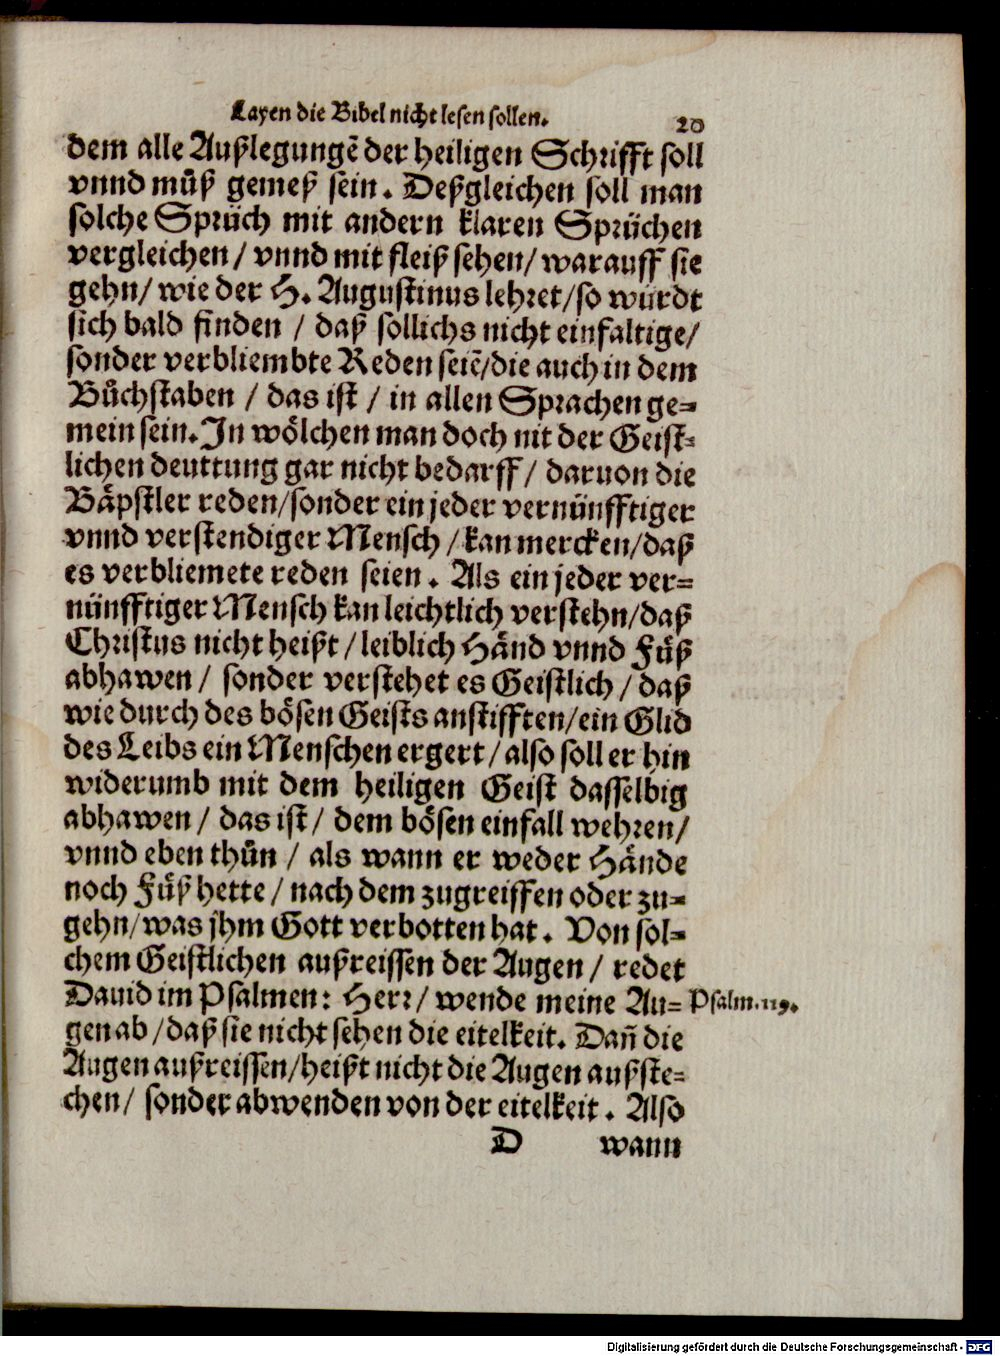 Layen die Bibel nicht lesen sollen. 20
dem alle Außlegungẽ der heiligen Schrifft soll
vnnd muͦß gemeß sein. Deßgleichen soll man
solche Spruͤch mit andern klaren Spruͤchen
vergleichen / vnnd mit fleiß sehen / warauff sie
gehn / wie der H. Augustinus lehret / so wurdt
sich bald finden / daß sollichs nicht einfaltige /
sonder verbliembte Reden seiẽ / die auch in dem
Buͦchstaben / das ist / in allen Sprachen ge⸗
mein sein. In woͤlchen man doch nit der Geist⸗
lichen deuttung gar nicht bedarff / daruon die
Baͤpstler reden / sonder ein jeder vernuͤnfftiger
vnnd verstendiger Mensch / kan mercken / daß
es verbliemete reden seien. Als ein jeder ver⸗
nuͤnfftiger Mensch kan leichtlich verstehn / daß
Christus nicht heißt / leiblich Haͤnd vnnd Fuͤß
abhawen / sonder verstehet es Geistlich / daß
wie durch des boͤsen Geists anstifften / ein Glid
des Leibs ein Menschen ergert / also soll er hin
widerumb mit dem heiligen Geist dasselbig
abhawen / das ist / dem boͤsen einfall wehren /
vnnd eben thuͦn / als wann er weder Haͤnde
noch Fuͤß hette / nach dem zugreiffen oder zu⸗
gehn / was jhm Gott verbotten hat. Von sol⸗
chem Geistlichen außreissen der Augen / redet
Dauid im Psalmen: Herr / wende meine Au⸗ Psalm. 119.
gen ab / daß sie nicht sehen die eitelkeit. Dañ die
Augen außreissen / heißt nicht die Augen außste⸗
chen / sonder abwenden von der eitelkeit. Also
D wann
Digitalisierung gefördert durch die Deutsche Forschungsgemeinschaft - DFG